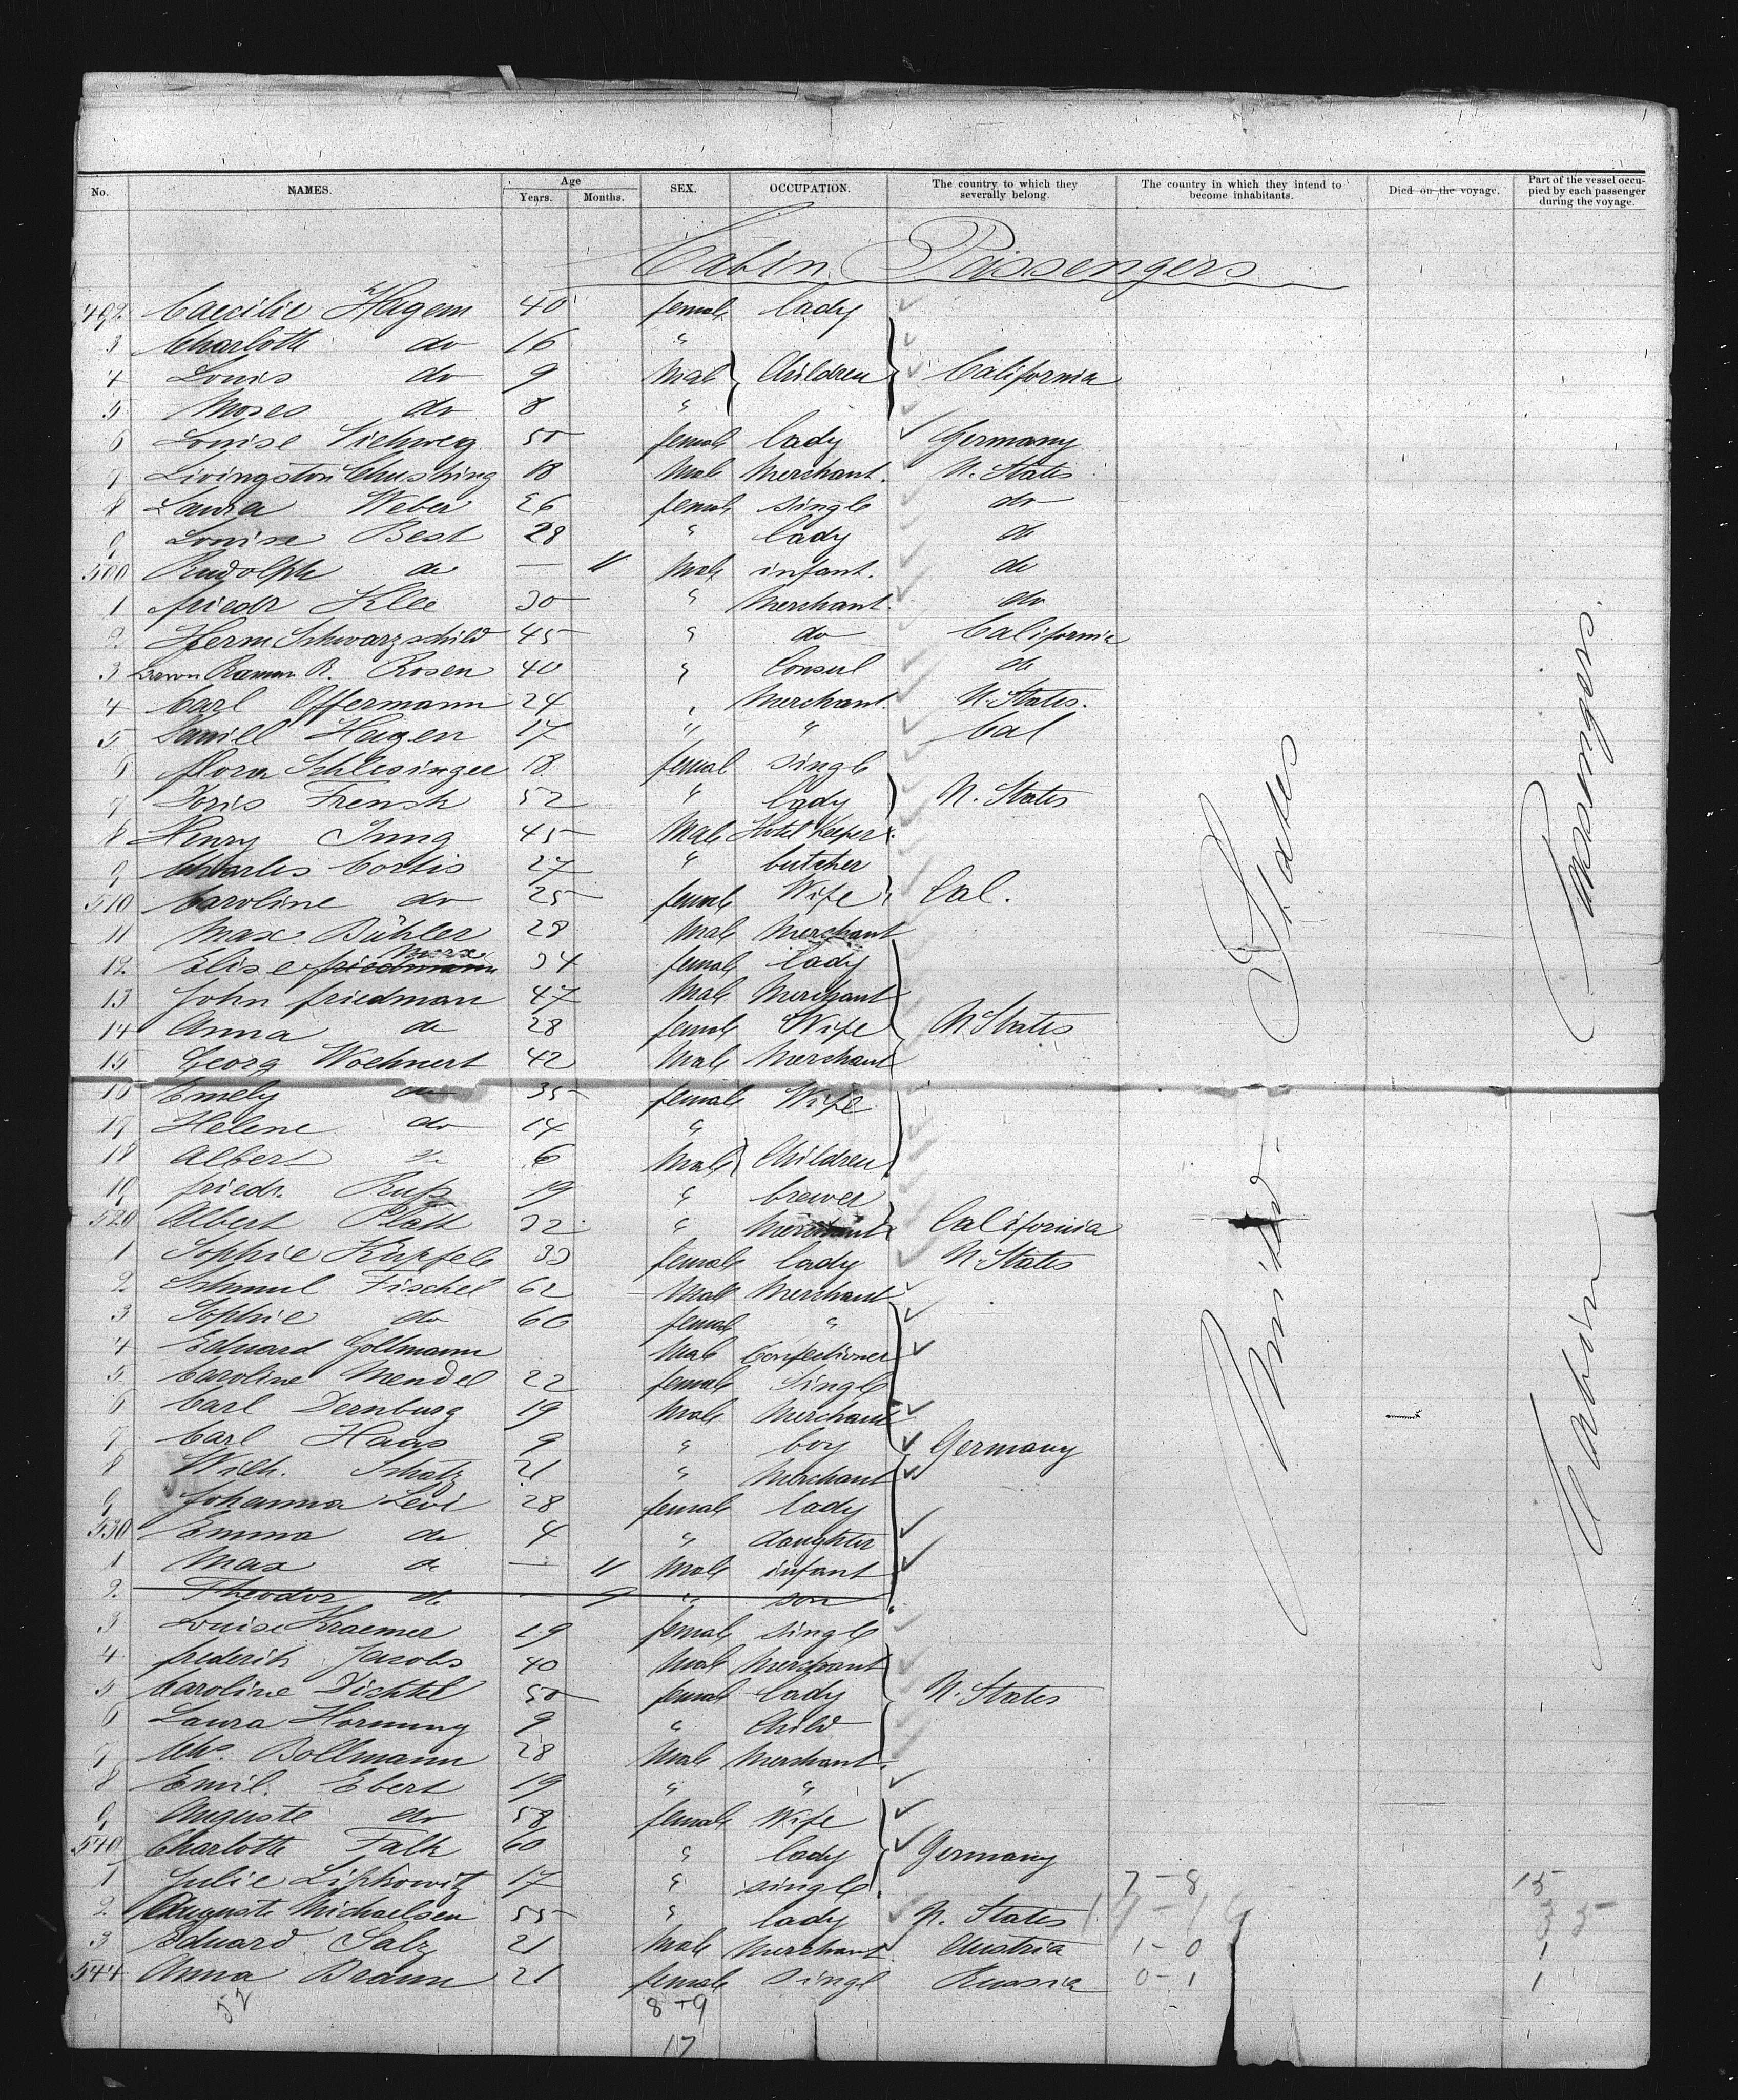 No. NAMES. Age Years. Months. SEX. OCCUPATION. The country to which they severally belong. The country in which they intend to become inhabitants. Died on the voyage. Part of the vessel occupied by each passenger during the voyage.
Cabin Passengers
492 Caecilie Hagem 40 female lady
3 Charlotte do 16 "
4 Louis do 9 Male Children California
5 Moses do 8 "
6 Louise Viehweg 50 female lady Germany
7 Livingston Chushing 18 Male Merchant. U. States
8 Laura Weber 26 female single do
9 Louise Best 28 " lady do
500 Rudolph do — 11 Male infant. do
1 friedr Klee 30 " Merchant. do
2 Herm Schwarzschild 45 " do California
3 Baron Ramon R. Rosen 40 " Consul do
4 Carl Offermann 24 " Merchant. U. States.
5 Daniell Hagen 17 " " Cal
6 flora Schlesinger 18 female single
7 Doris Frensk 52 " lady U. States
8 Henry Jung 45 Male Hotel Keeper
9 Charles Cortis 27 " butcher
510 Caroline do 25 female Wife Cal.
11 Max Bühler 28 Male Merchant
12 Elise friedmann Marx 34 female lady
13 John friedman 47 Male Merchant
14 Anna do 28 female Wife U States
15 Georg Woehnert 42 Male Merchant
16 Emely do 35 female Wife
17 Helene do 14 "
18 Albert do 6 Male Children
19 friedr. Rup 19 " brewer
520 Albert Platt 32 " Merchant California
1 Sophie Kupfele 33 female lady U. States
2 Schmul Fischel 62 Male Merchant
3 Sophie do 60 female "
4 Eduard Gollmann Male Confectioner
5 Caroline Mendel 22 female Single
6 Carl Dernburg 19 Male Merchant
7 Carl Haas 9 " boy Germany
8 Wilh. Schatz 21 " Merchant
9 Johanna Levi 28 female lady
530 Emma do 4 " daughter
1 Max do — 11 Male infant
2. Theodor do — 9 " son
3 Louise Kraemer 19 female single
4 frederik Jacobs 40 Male Merchant
5 Caroline Dichtel 50 female lady U. States
6 Laura Hornung 9 " Child
7 Chs. Bollmann 28 Male Merchant.
8 Emil. Ebert 19 " "
9 Auguste do 58 female Wife
540 Charlotte Falk 60 " lady Germany
1 Julie Lipkowitz 17 " single 7-8 15
2 Auguste Michaelsen 55 " lady U. States
3 Eduard Salz 21 Male Merchant Austria 1-0 1
544 Anna Braun 21 female Singl Russia 0-1 1
52 8+9
17
United States
Cabin Passengers.